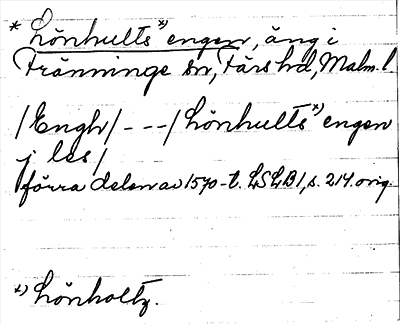 * Lönhults*) engen, äng i
Tränninge sn, Färs hd, Malm. l.
/Enghr/ - - - / Lönhults*) engen
j les /
förra delen av 1570-t. LSLB 1, s. 214. orig.
*) Lönholtz.